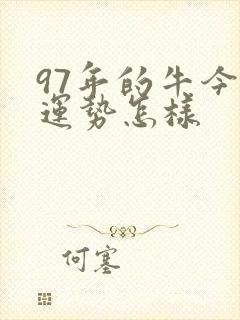 97年的牛今
运势怎样
何塞